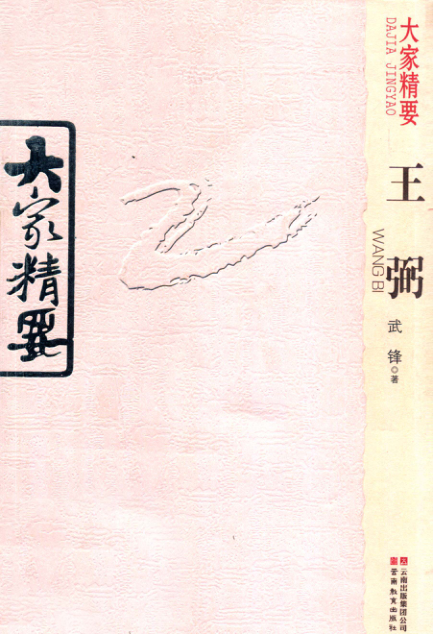 大家精要
DAJIA JINGYAO
王弼
WANG BI
武锋◎著
大家精要
云南出版集团公司
云南教育出版社